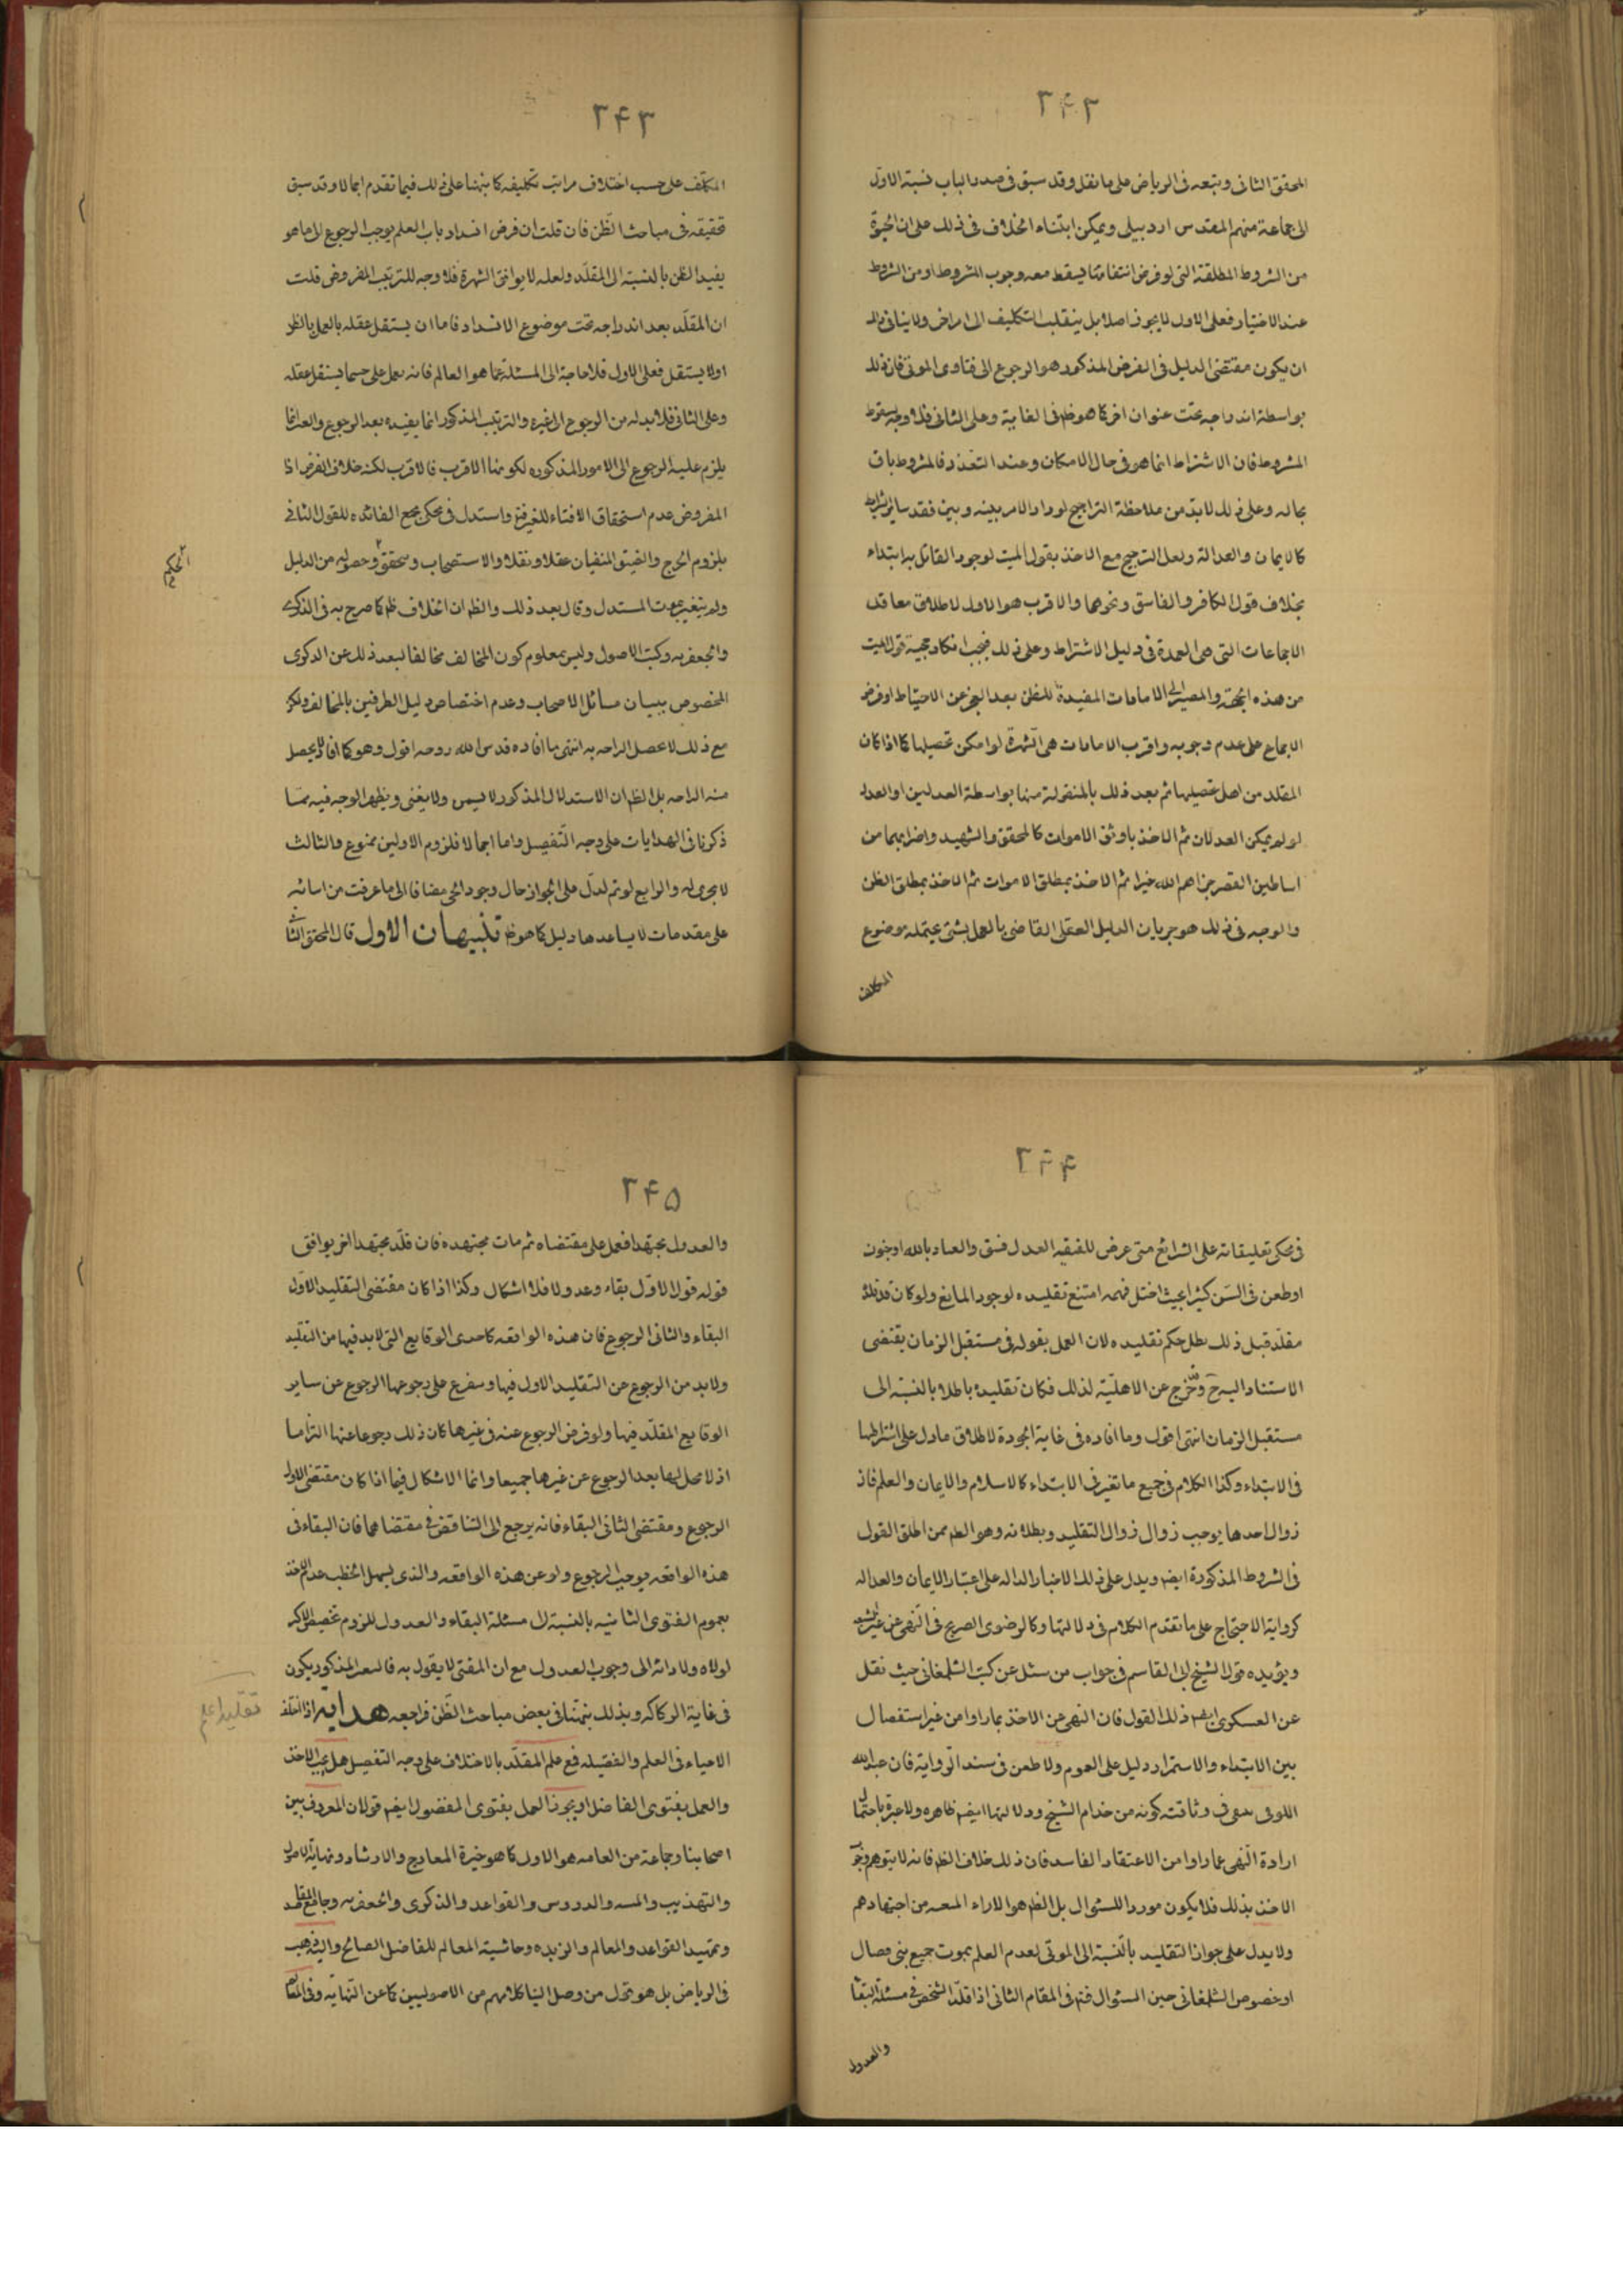 ۲۴۲
المحقق الثانی وتبعه فی الریاض علی ما نقل وقد سبق فی صدر الباب نسبة الاول
الی جماعة منهم المقدس اردبیلی ویمکن ابتناء الخلاف فی ذلک علی ان الحیوة
من الشروط المطلقة التی لو فرض انتفائها یسقط معه وجوب المشروط او من الشروط
عند الاختیار فعلی الاول لا یجوز اصلا بل ینقلب التکلیف الی امر اخر ولا ینافی ذلک
ان یکون مقتضی الدلیل فی الفرض المذکور هو الرجوع الی فتاوی الموتی فان ذلک
بواسطة اندراجه تحت عنوان اخر کما هو ظ فی الغایة وعلی الثانی فلا وجه لسقوط
المشروط فان الاشتراط انما هو فی حال الامکان وعند التعذر فالمشروط باق
بحاله وعلی ذلک لا بد من ملاحظة التراجیح لو دار الامر بینه وبین فقد سایر الشرایط
کالایمان والعدالة ولعل الترجیح مع الاخذ بقول المیت لوجود القائل به ابتداء
بخلاف قول الکافر والفاسق ونحوهما والاقرب هو الاول لاطلاق معاقد
الاجماعات التی هی العمدة فی دلیل الاشتراط وعلی ذلک فیجب انکار حجیة قول المیت
من هذه الجهة والمصیر الی الامارات المفیدة للظن بعد العجز عن الاحتیاط او فرض
الاجماع علی عدم وجوبه واقرب الامارات هی الشهرة لو امکن تحصیلها کما اذا کان
المقلد من اهل تحصیلها ثم بعد ذلک بالمنقولة منها بواسطة العدلین او العدل
لو لم یمکن العدلان ثم الاخذ باوثق الاموات کالمحقق والشهید واضرابهما من
اساطین العصر جزاهم الله خیرا ثم الاخذ بمطلق الاموات ثم الاخذ بمطلق الظن
والوجه فی ذلک هو جریان الدلیل العقلی القاضی بالعمل بشئ یحتمله موضوع
المکلف
۲۴۳
المکلف علی حسب اختلاف مراتب تکلیفه کما نبهنا علی ذلک فیما تقدم اجمالا وقد سبق
تحقیقه فی مباحث الظن فان قلت ان فرض انسداد باب العلم یوجب الرجوع الی ما هو
یفید الظن بالنسبة الی المقلد ولعله لا یوافق الشهرة فلا وجه للترتیب المفروض قلت
ان المقلد بعد اندراجه تحت موضوع الانسداد فاما ان یستقل عقله بالعمل بالظن
اولا یستقل فعلی الاول فلا حاجة الی المسئلة عما هو العالم فانه یعمل علی حسبما یستقل عقله
وعلی الثانی فلا بد له من الرجوع الی غیره والترتیب المذکور انما یفیده بعد الرجوع والعد انما
یلزم علیه الرجوع الی الامور المذکوره لکونها الاقرب فالاقرب لکنه خلاف الفرض اذا
المفروض عدم استحقاق الافتاء للغیر فتع واستدل فی محکی مجمع الفائده للقول الثانی
بلزوم الحرج والضیق المنفیان عقلا ونقلا والاستصحاب وبتحقق وحصوله من الدلیل
الحکم
ولم یتغیر بموت المستدل وقال بعد ذلک والظ ان الخلاف ظ کما صرح به فی الذکری
والجعفریه وکتب الاصول ولیس بمعلوم کون المخالف مخالفا لبعد ذلک عن الذکری
المخصوص ببیان مسائل الاصحاب وعدم اختصاص دلیل الطرفین بالمخالف ولکن
مع ذلک لا تحصل الراحه به انتهی ما افاده قدس الله روحه اقول وهو کما افاد لا یحصل
منه الراحه بل الظ ان الاستدلال المذکور لا یسمن ولا یغنی ویظهر الوجه فیه مما
ذکرنا فی الهدایات علی وجه التفصیل واما اجمالا فلزوم الاولین ممنوع والثالث
لا یجری له والرابع لو تم لدل علی الجواز حال وجود الحی مضافا الی ما عرفت من اساسه
علی مقدمات لا یساعدها دلیل کما هو ظ تنبیهان الاول قال المحقق الثانی
۲۴۴
فی محکی تعلیقاته علی الشرائع متی عرض للفقیه العدل فسق والعیاذ بالله او جنون
او طعن فی السن کثیرا بحیث اختل فهمه امتنع تقلیده لوجود المانع ولو کان قد قلده
مقلد قبل ذلک بطل حکم تقلیده لان العمل بقوله فی مستقبل الزمان یقتضی
الاستناد الیه ح وقد خرج عن الاهلیة لذلک فکان تقلیده باطلا بالنسبة الی
مستقبل الزمان انتهی اقول وما افاده فی غایة الجودة لاطلاق ما دل علی اشتراطها
فی الابتداء وکذا الکلام فی جمیع ما تغیر فی الابتداء کالاسلام والایمان والعلم فان
زوال احدها یوجب زوال زوال التقلید وبطلانه وهو الظ ممن اطلق القول
فی الشروط المذکورة ایضم ویدل علی ذلک الاخبار الداله علی اعتبار الایمان والعداله
کروایة الاحتجاج علی ما تقدم الکلام فی دلالتها وکالرضوی الصریح فی النهی عن غیر الشیعه
ویؤیده قول الشیخ ابی القاسم فی جواب من سئل عن کتب الشلمغانی حیث نقل
عن العسکری ایضم ذلک القول فان النهی عن الاخذ بما راوا من غیر استفصال
بین الابتداء والاستمرار دلیل علی العموم ولا طعن فی سند الروایة فان عبد الله
الکوفی یکفی فی وثاقته کونه من خدام الشیخ ودلالتها ایضم ظاهره ولا عبرة باحتمال
ارادة النهی عما راوا من الاعتقاد الفاسد فان ذلک خلاف الظ فانه لا یتوهم وجه
الاخذ بذلک فلا یکون موردا للسئوال بل الظ هو الاراء من اجتهادهم
ولا یدل علی جواز التقلید بالنسبة الی الموتی لعدم العلم بموت جمیع بنی فضال
او خصوص الشلمغانی حین السئوال فتم فی المقام الثانی اذا قلد الشخص فی مسئلة البقاء
والعدول
۲۴۵
والعدول مجتهدا فعمل علی مقتضاه ثم مات مجتهده فان قلد مجتهدا اخر یوافق
قوله قول الاول بقاء وعدولا فلا اشکال وکذا اذا کان مقتضی التقلید الاول
البقاء والثانی الرجوع فان هذه الواقعه کاحدی الوقایع التی لا بد فیها من التقلید
ولا بد من الرجوع عن التقلید الاول فیها ویتفرع علی رجوعها الرجوع عن سایر
الوقایع المقلد فیها ولو فرض الرجوع عنه فی غیرها کان ذلک رجوعا عنها التزاما
اذ لا محل لها بعد الرجوع عن غیرها جمیعا وانما الاشکال فیما اذا کان مقتضی الاول
الرجوع ومقتضی الثانی البقاء فانه یرجع الی التناقض فی مقتضاهما فان البقاء فی
هذه الواقعه یوجب الرجوع ولو عن هذه الواقعه والذی یسهل الخطب عدم الاخذ
بعموم الفتوی الثانیه بالنسبة الی مسئلة البقاء والعدول للزوم تخصیص الاکثر
لولاه ولادائه الی وجوب العدول مع ان المفتی لا یقول به فالمذکور یکون
فی غایة الرکاکه وبذلک نبهنا فی بعض مباحث الظن فراجعه هدایه اذا اختلف
تقلید اعلم
الاحیاء فی العلم والفضیله فمع علم المقلد بالاختلاف علی وجه التفصیل هل یجب الاخذ
والعمل بفتوی الفاضل او یجوز العمل بفتوی المفضول ایضم قولان المعروف بین
اصحابنا وجماعة من العامه هو الاول کما هو خیرة المعارج والارشاد ونهایة الاصول
والتهذیب والمنیه والدروس والقواعد والذکری والجعفریه وجامع المقاصد
وتمهید القواعد والمعالم والزبده وحاشیة المعالم للفاضل الصالح والیه ذهب
فی الریاض بل هو قول من وصل الینا کلامهم من الاصولیین کما عن النهایه وفی المعالم